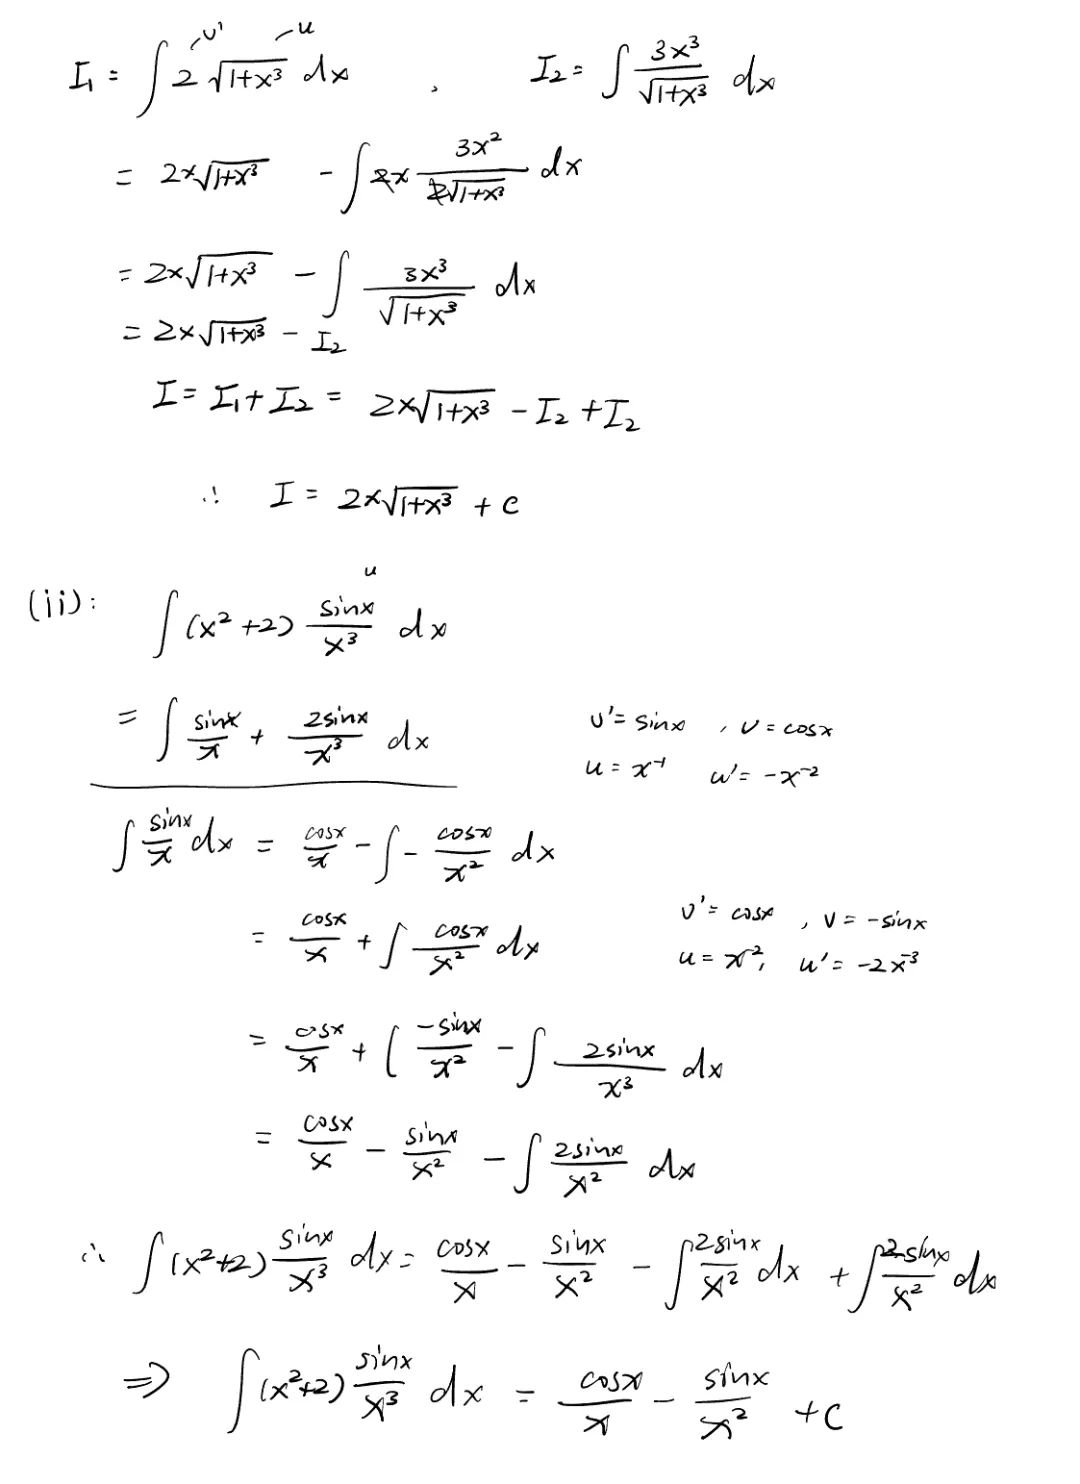 I₁ = ∫ 2 √(1+x³) dx , I₂ = ∫ 3x³/√(1+x³) dx
v' u
= 2x√(1+x³) - ∫ 2x 3x²/(2√(1+x³)) dx
= 2x√(1+x³) - ∫ 3x³/√(1+x³) dx
= 2x√(1+x³) - I₂
I = I₁ + I₂ = 2x√(1+x³) - I₂ + I₂
∴ I = 2x√(1+x³) + c
u
(ii): ∫ (x²+2) sinx/x³ dx
= ∫ sinx/x + 2sinx/x³ dx
v' = sinx , v = cosx
u = x⁻¹ u' = -x⁻²
∫ sinx/x dx = cosx/x - ∫ - cosx/x² dx
= cosx/x + ∫ cosx/x² dx
v' = cosx , v = -sinx
u = x⁻², u' = -2x⁻³
= cosx/x + ( -sinx/x² - ∫ 2sinx/x³ dx
= cosx/x - sinx/x² - ∫ 2sinx/x² dx
∴ ∫ (x²+2) sinx/x³ dx = cosx/x - sinx/x² - ∫ 2sinx/x² dx + ∫ 2sinx/x² dx
⇒ ∫ (x²+2) sinx/x³ dx = cosx/x - sinx/x² + c